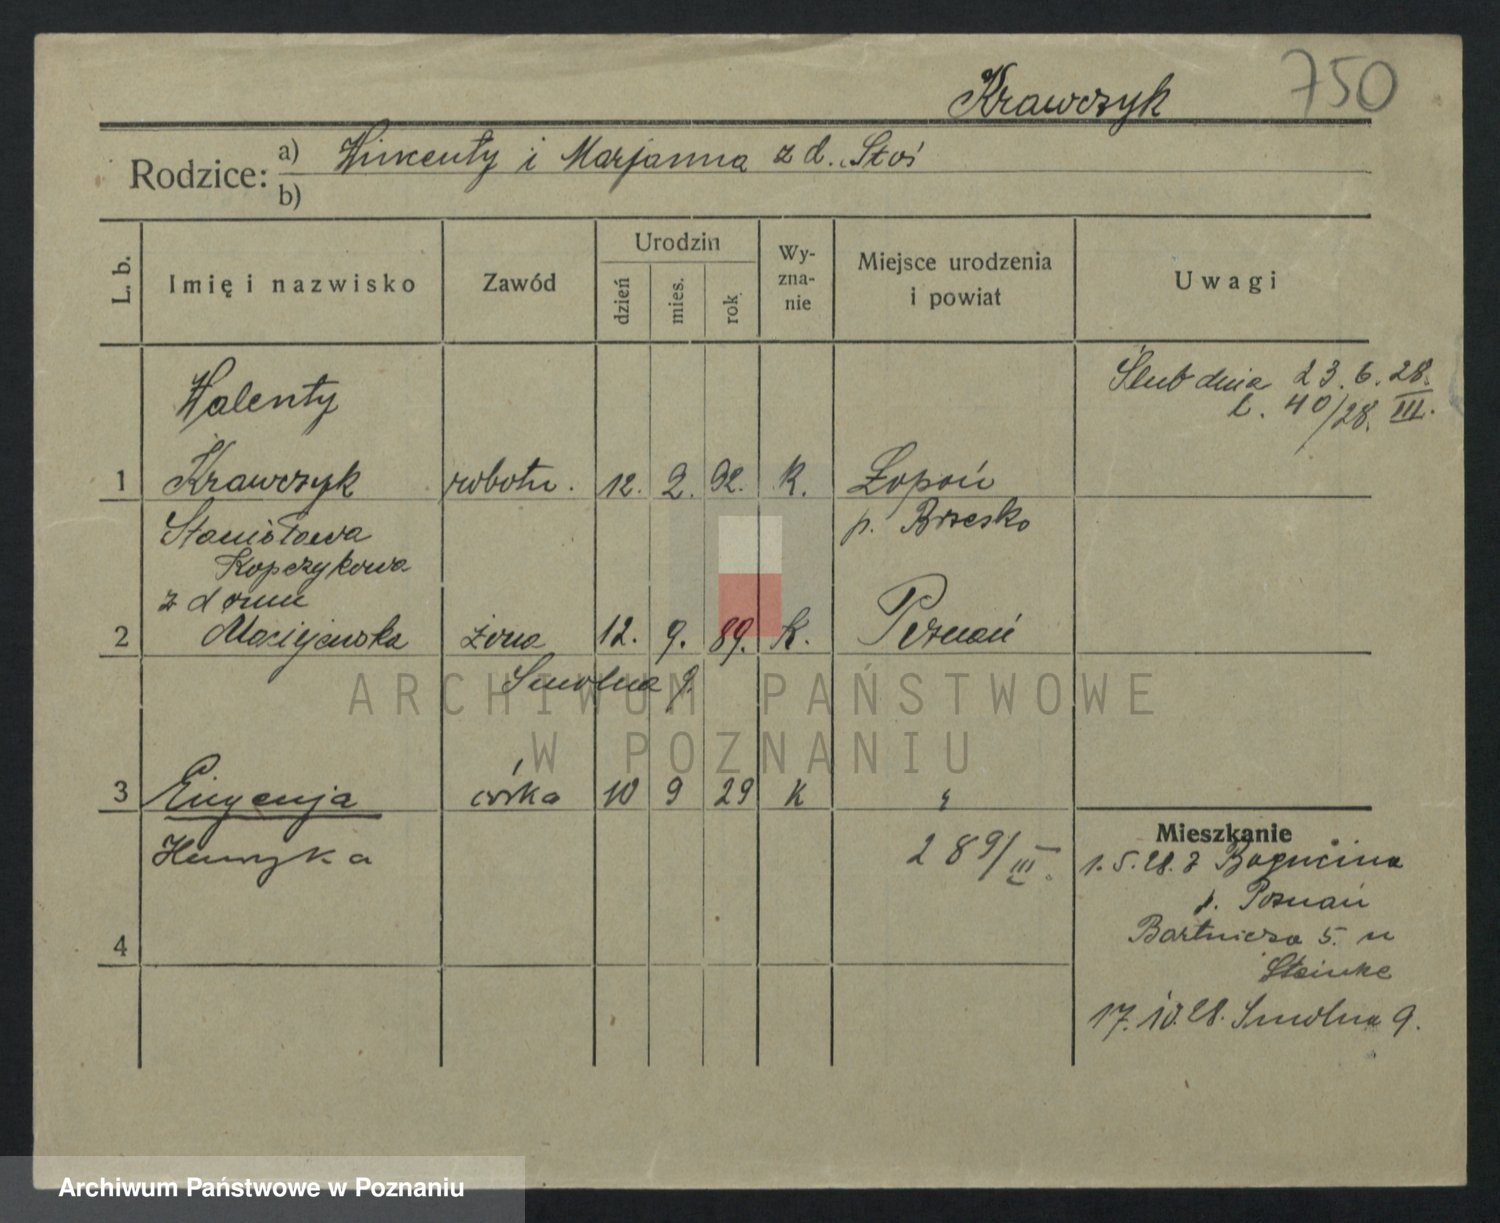 750
Krawczyk
Rodzice:
a) Wincenty i Marjanna z d. Stoś
b)
L. b.
Imię i nazwisko
Zawód
Urodzin
dzień
mies.
rok
Wy-
zna-
nie
Miejsce urodzenia
i powiat
Uwagi
Walenty
1 Krawczyk robotn. 12. 2. 92. K. Łopoń
p. Brzesko
Ślub dnia 23. 6. 28.
L. 40/28. III.
Stanisława
Kopczykowa
z domu
2 Maciejewska żona 12. 9. 89. K. Poznań
Smolna 9.
3 Eugenja córka 10 9 29 K "
Henryka
289/III.
4
Mieszkanie
1. 5. 28. z Bogucina
p. Poznań
Bartnicza 5. u
Steinke
17. 10. 28. Smolna 9.
ARCHIWUM PAŃSTWOWE
W POZNANIU
Archiwum Państwowe w Poznaniu